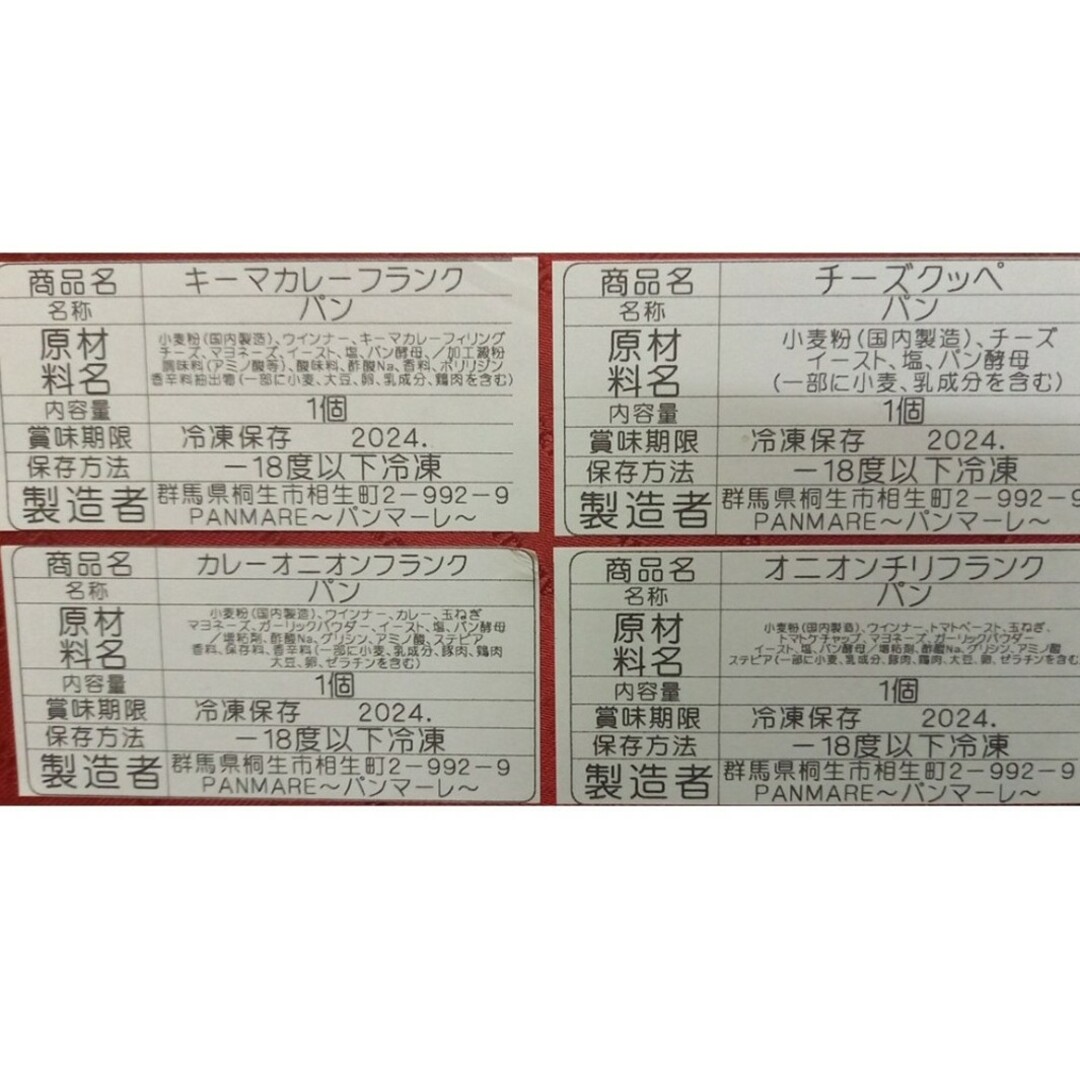 商品名 キーマカレーフランク
名称 パン
原材料名 小麦粉(国内製造)、ウインナー、キーマカレーフィリング
チーズ、マヨネーズ、イースト、塩、パン酵母、/加工澱粉
調味料(アミノ酸等)、酸味料、酢酸Na、香料、ポリリジン
香辛料抽出物(一部に小麦、大豆、卵、乳成分、鶏肉を含む)
内容量 1個
賞味期限 冷凍保存 2024.
保存方法 −18度以下冷凍
製造者 群馬県桐生市相生町2−992−9
PANMARE〜パンマーレ〜
商品名 チーズクッペ
名称 パン
原材料名 小麦粉(国内製造)、チーズ
イースト、塩、パン酵母
(一部に小麦、乳成分を含む)
内容量 1個
賞味期限 冷凍保存 2024.
保存方法 −18度以下冷凍
製造者 群馬県桐生市相生町2−992−9
PANMARE〜パンマーレ〜
商品名 カレーオニオンフランク
名称 パン
原材料名 小麦粉(国内製造)、ウインナー、カレー、玉ねぎ
マヨネーズ、ガーリックパウダー、イースト、塩、パン酵母
/増粘剤、酢酸Na、グリシン、アミノ酸、ステビア
香料、保存料、香辛料(一部に小麦、乳成分、豚肉、鶏肉
大豆、卵、ゼラチンを含む)
内容量 1個
賞味期限 冷凍保存 2024.
保存方法 −18度以下冷凍
製造者 群馬県桐生市相生町2−992−9
PANMARE〜パンマーレ〜
商品名 オニオンチリフランク
名称 パン
原材料名 小麦粉(国内製造)、ウインナー、トマトペースト、玉ねぎ、
トマトケチャップ、マヨネーズ、ガーリックパウダー
イースト、塩、パン酵母/増粘剤、酢酸Na、グリシン、アミノ酸
ステビア(一部に小麦、乳成分、豚肉、鶏肉、大豆、卵、ゼラチンを含む
内容量 1個
賞味期限 冷凍保存 2024.
保存方法 −18度以下冷凍
製造者 群馬県桐生市相生町2−992−9
PANMARE〜パンマーレ〜